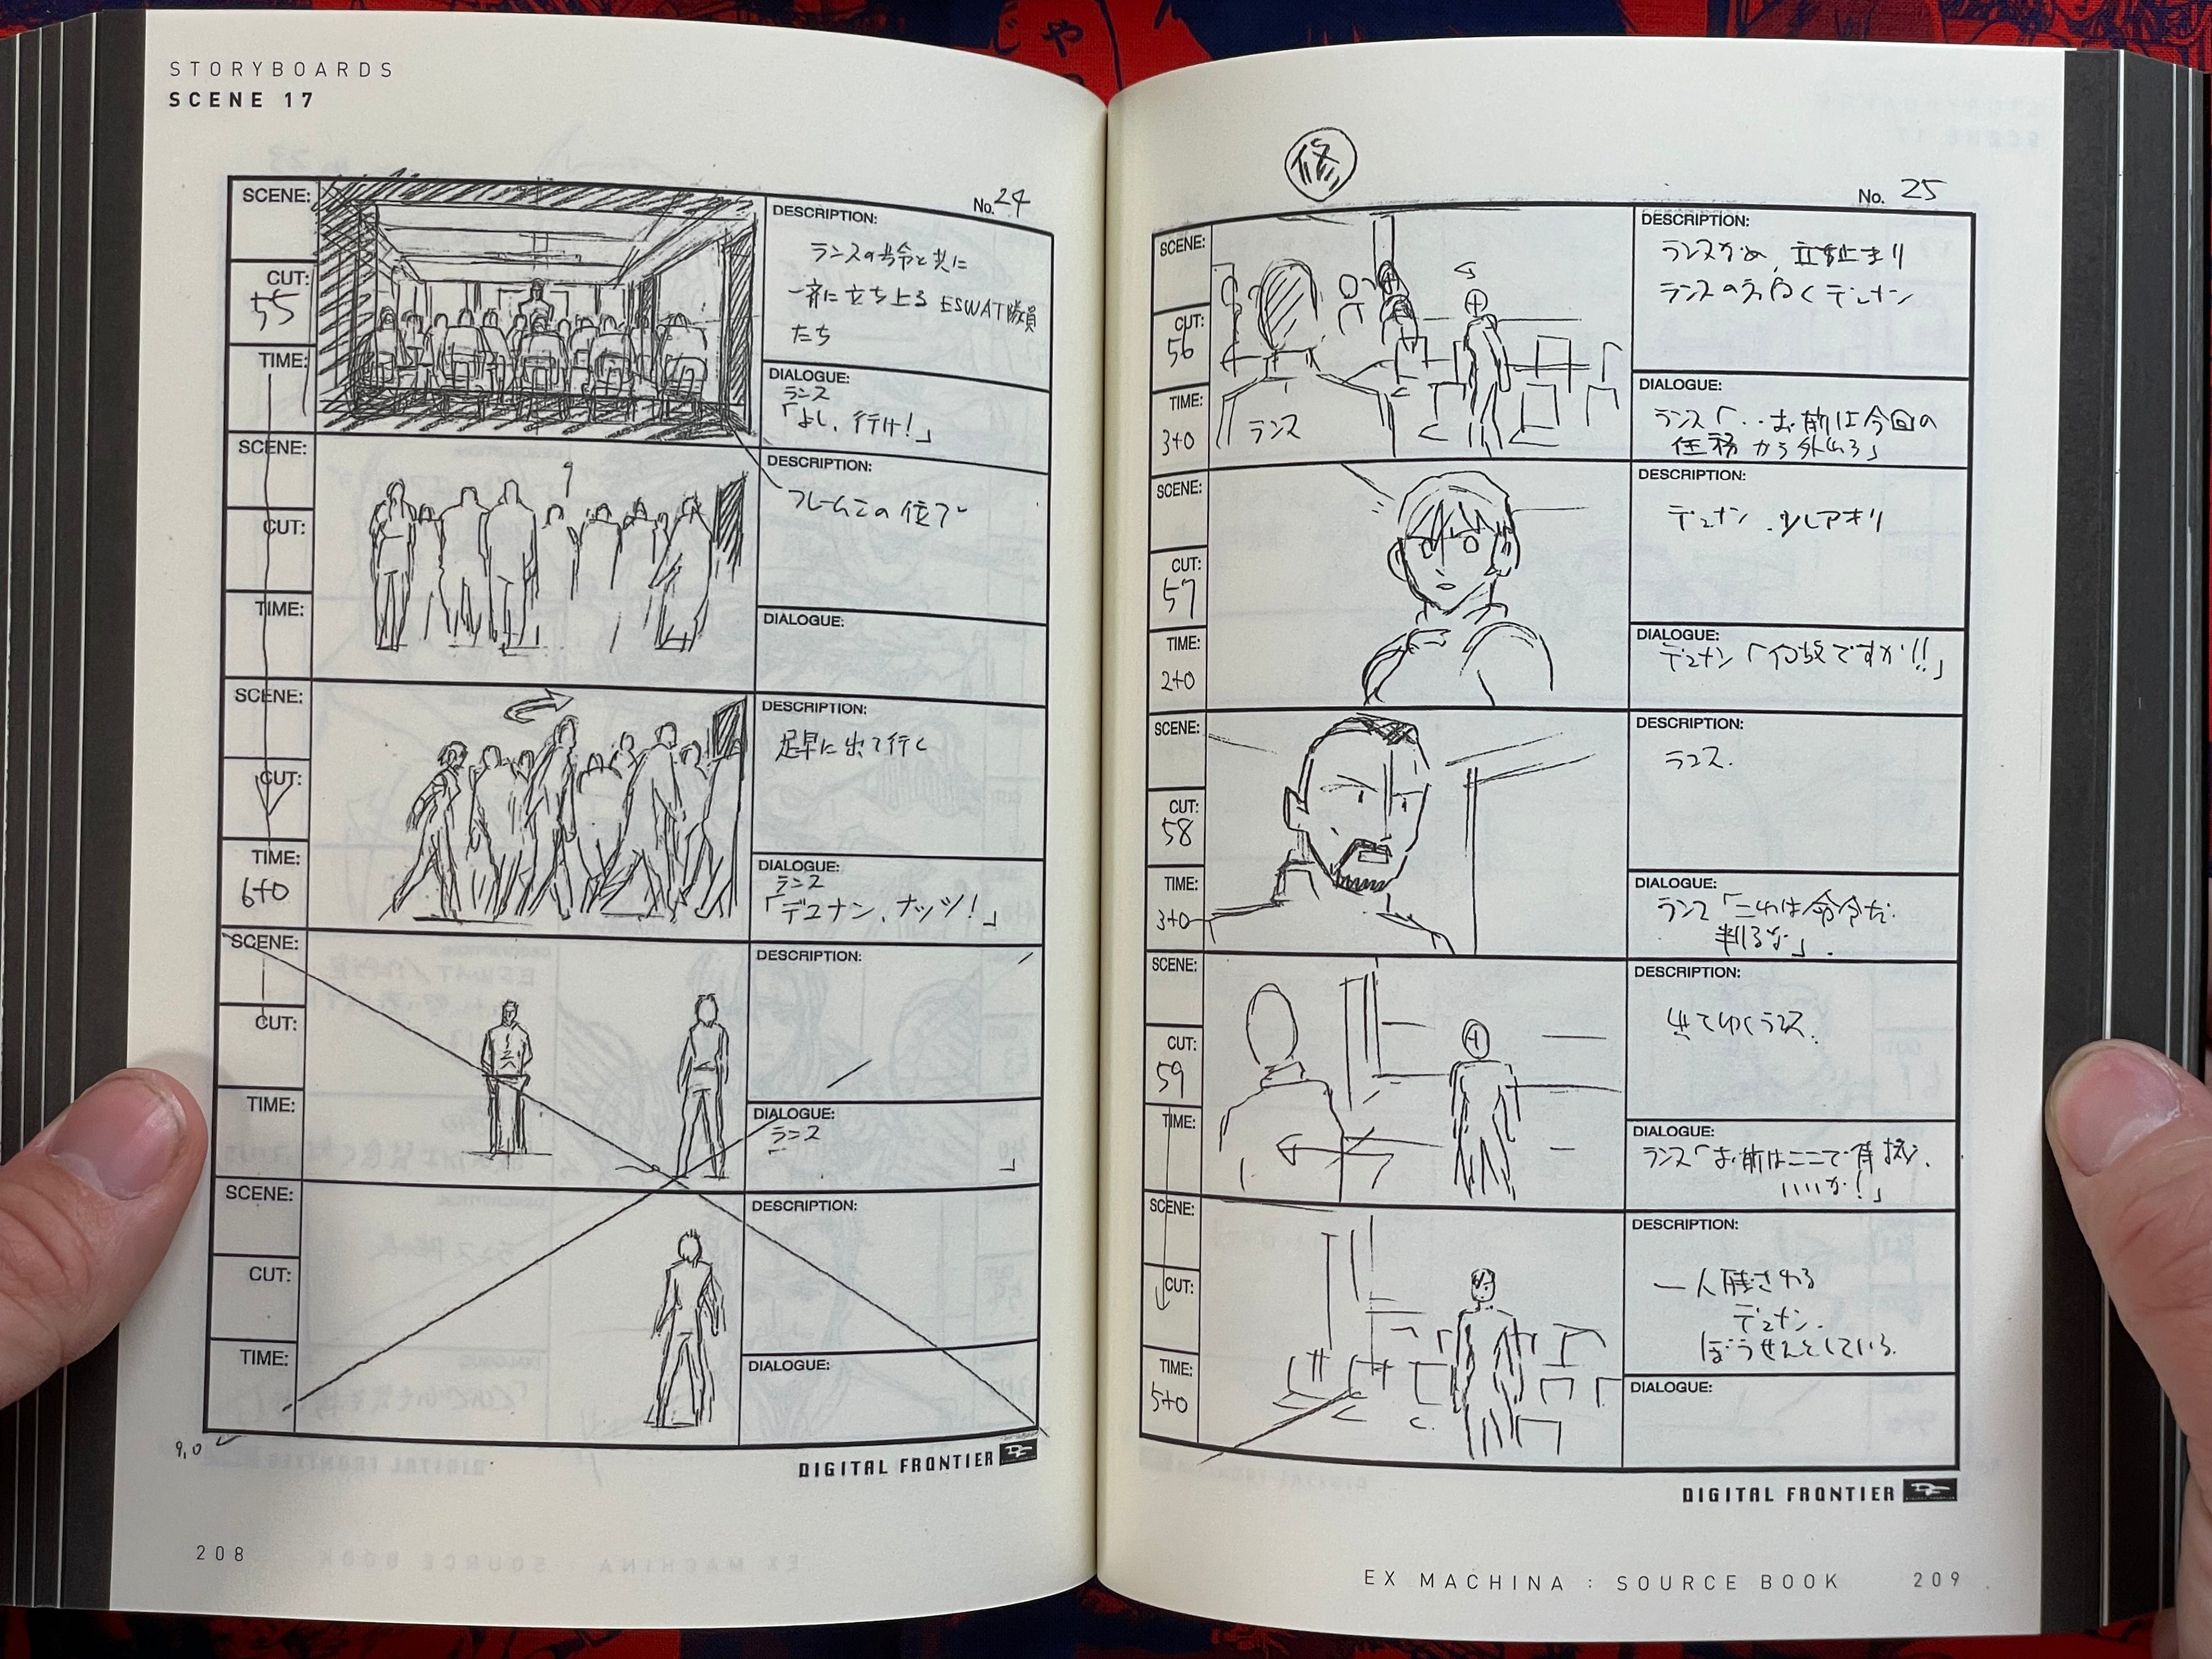 じゃ
STORYBOARDS
SCENE 17
No. 24
SCENE:
CUT:
55
TIME:
DESCRIPTION:
ランスの号令と共に
一斉に立ち上る ESWAT隊員
たち
DIALOGUE:
ランス
「よし、行け!」
SCENE:
CUT:
TIME:
DESCRIPTION:
フレームこの位で
DIALOGUE:
SCENE:
CUT:
TIME:
6+0
DESCRIPTION:
足早に出て行く
DIALOGUE:
ランス
「デュナン、ナッツ!」
SCENE:
CUT:
TIME:
DESCRIPTION:
DIALOGUE:
ランス
」
SCENE:
CUT:
TIME:
DESCRIPTION:
DIALOGUE:
9,0
DIGITAL FRONTIER
208
修
No. 25
SCENE:
CUT:
56
TIME:
3+0
ランス
DESCRIPTION:
ランスなめ、立ち止まり
ランスの方向くデュナン
DIALOGUE:
ランス「‥お前は今回の
任務から外れろ」
SCENE:
CUT:
57
TIME:
2+0
DESCRIPTION:
デュナン、少しアオリ
DIALOGUE:
デュナン「何故ですか!!」
SCENE:
CUT:
58
TIME:
3+0
DESCRIPTION:
ランス.
DIALOGUE:
ランス「これは命令だ.
判るな」.
SCENE:
CUT:
59
TIME:
DESCRIPTION:
出てゆくランス.
DIALOGUE:
ランス「お前はここで待機、
いいか!」
SCENE:
CUT:
TIME:
5+0
DESCRIPTION:
一人残される
デュナン.
ぼうぜんとしている.
DIALOGUE:
DIGITAL FRONTIER
EX MACHINA : SOURCE BOOK 209